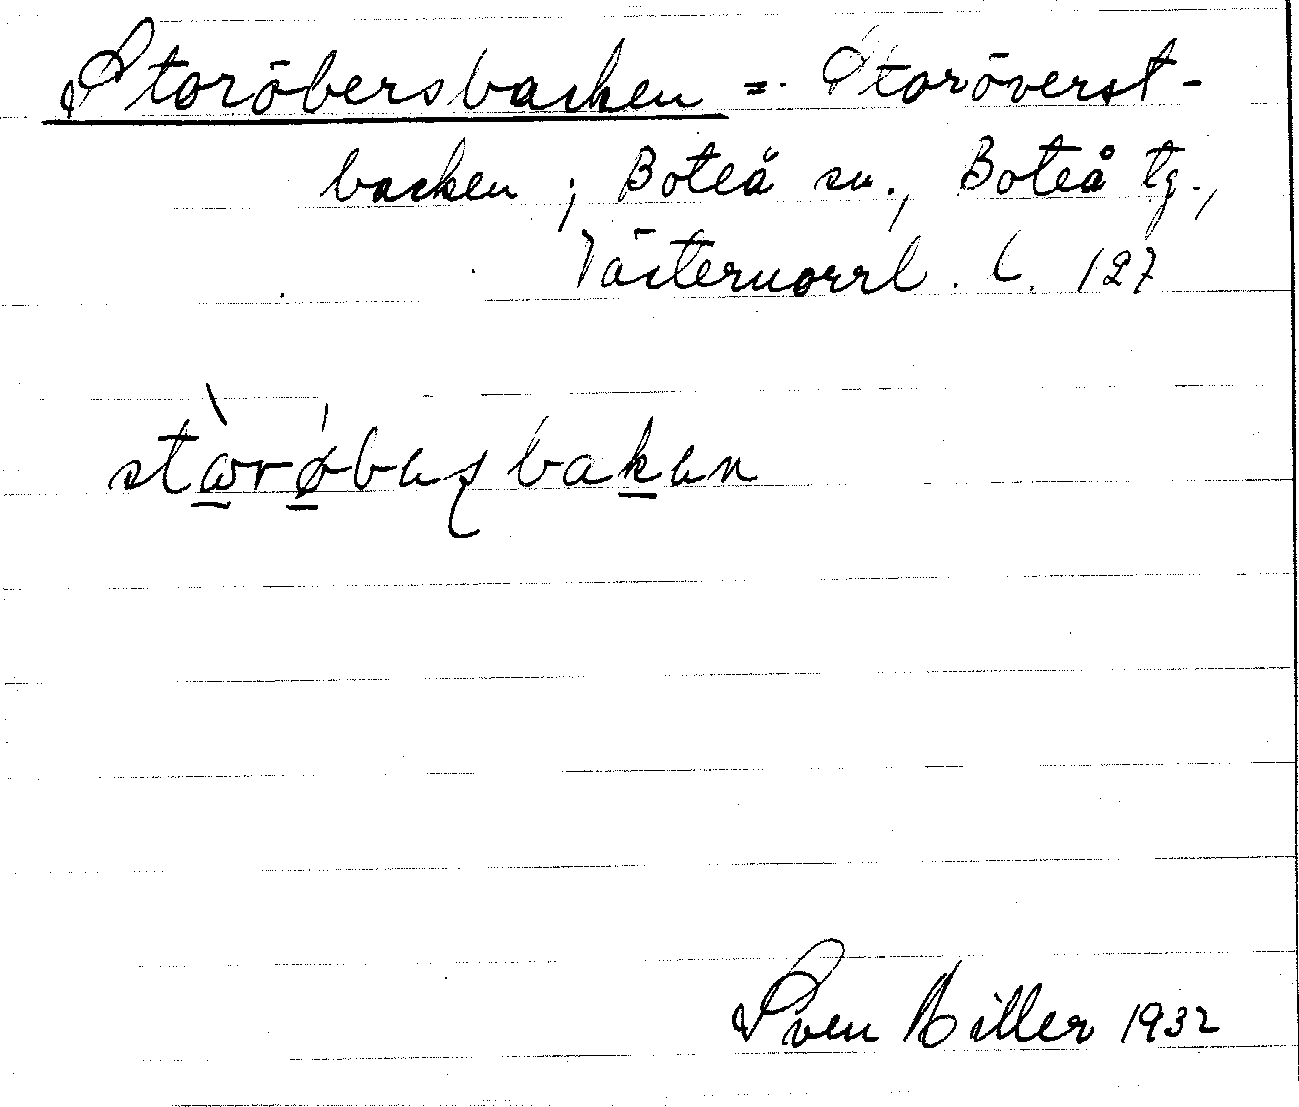 Storöbersbacken = Storöverst-
backen; Boteå sn., Boteå tg.,
Västernorrl. l. 127
stàrǿbesbaken
Sven Hiller 1932